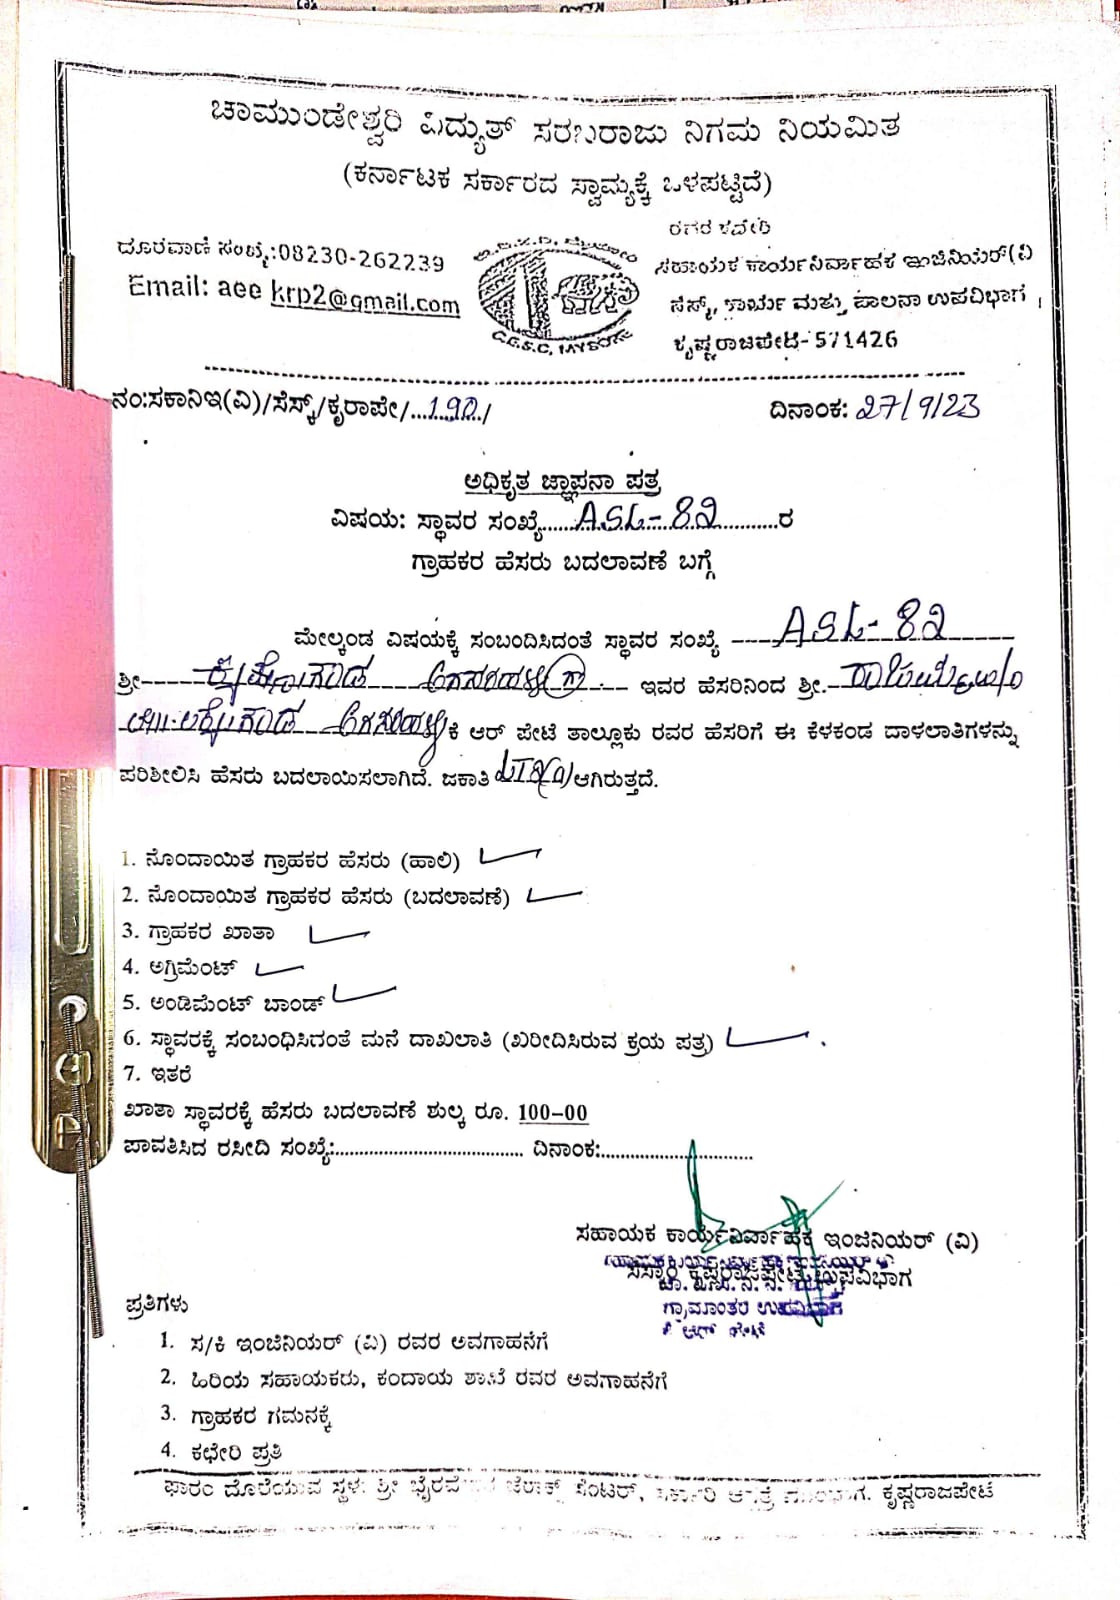 ಚಾಮುಂಡೇಶ್ವರಿ ವಿದ್ಯುತ್ ಸರಬರಾಜು ನಿಗಮ ನಿಯಮಿತ
(ಕರ್ನಾಟಕ ಸರ್ಕಾರದ ಸ್ವಾಮ್ಯಕ್ಕೆ ಒಳಪಟ್ಟಿದೆ)
ದೂರವಾಣಿ ಸಂಖ್ಯೆ:08230-262239
Email: aee krp2@gmail.com
C.E.S.C, MYSORE
ಸಹಾಯಕ ಕಾರ್ಯನಿರ್ವಾಹಕ ಇಂಜಿನಿಯರ್(ವಿ
ಸೆಸ್ಕ್, ಕಾರ್ಯ ಮತ್ತು ಪಾಲನಾ ಉಪವಿಭಾಗ ,
ಕೃಷ್ಣರಾಜಪೇಟೆ-571426
ನಂ:ಸಕಾನಿಇ(ವಿ)/ಸೆಸ್ಕ್/ಕೃರಾಪೇ/...192./ ದಿನಾಂಕ: 27/9/23
ಅಧಿಕೃತ ಜ್ಞಾಪನಾ ಪತ್ರ
ವಿಷಯ: ಸ್ಥಾವರ ಸಂಖ್ಯೆ......ASL-82............ರ
ಗ್ರಾಹಕರ ಹೆಸರು ಬದಲಾವಣೆ ಬಗ್ಗೆ
ಮೇಲ್ಕಂಡ ವಿಷಯಕ್ಕೆ ಸಂಬಂದಿಸಿದಂತೆ ಸ್ಥಾವರ ಸಂಖ್ಯೆ ----ASL-82------
ಶ್ರೀ------ ಇವರ ಹೆಸರಿನಿಂದ ಶ್ರೀ.--
ಕೆ ಆರ್ ಪೇಟೆ ತಾಲ್ಲೂಕು ರವರ ಹೆಸರಿಗೆ ಈ ಕೆಳಕಂಡ ದಾಳಲಾತಿಗಳನ್ನು
ಪರಿಶೀಲಿಸಿ ಹೆಸರು ಬದಲಾಯಿಸಲಾಗಿದೆ. ಜಕಾತಿ ಆಗಿರುತ್ತದೆ.
1. ನೊಂದಾಯಿತ ಗ್ರಾಹಕರ ಹೆಸರು (ಹಾಲಿ)
2. ನೊಂದಾಯಿತ ಗ್ರಾಹಕರ ಹೆಸರು (ಬದಲಾವಣೆ)
3. ಗ್ರಾಹಕರ ಖಾತಾ
4. ಅಗ್ರಿಮೆಂಟ್
5. ಅಂಡಿಮೆಂಟ್ ಬಾಂಡ್
6. ಸ್ಥಾವರಕ್ಕೆ ಸಂಬಂಧಿಸಿದಂತೆ ಮನೆ ದಾಖಲಾತಿ (ಖರೀದಿಸಿರುವ ಕ್ರಯ ಪತ್ರ)
7. ಇತರೆ
ಖಾತಾ ಸ್ಥಾವರಕ್ಕೆ ಹೆಸರು ಬದಲಾವಣೆ ಶುಲ್ಕ ರೂ. 100-00
ಪಾವತಿಸಿದ ರಸೀದಿ ಸಂಖ್ಯೆ:.................................... ದಿನಾಂಕ:.............................
ಸಹಾಯಕ ಕಾರ್ಯನಿರ್ವಾಹಕ ಇಂಜಿನಿಯರ್ (ವಿ)
ಕೃಷ್ಣರಾಜಪೇಟೆ ಉಪವಿಭಾಗ
ಗ್ರಾಮಾಂತರ ಉಪವಿಭಾಗ
ಪ್ರತಿಗಳು
1. ಸ/ಕಿ ಇಂಜಿನಿಯರ್ (ವಿ) ರವರ ಅವಗಾಹನೆಗೆ
2. ಹಿರಿಯ ಸಹಾಯಕರು, ಕಂದಾಯ ಶಾಖೆ ರವರ ಅವಗಾಹನೆಗೆ
3. ಗ್ರಾಹಕರ ಗಮನಕ್ಕೆ
4. ಕಛೇರಿ ಪ್ರತಿ
ಫಾರಂ ದೊರೆಯುವ ಸ್ಥಳ: ಶ್ರೀ ಜೆರಾಕ್ಸ್ ಸೆಂಟರ್, ಕೃಷ್ಣರಾಜಪೇಟೆ